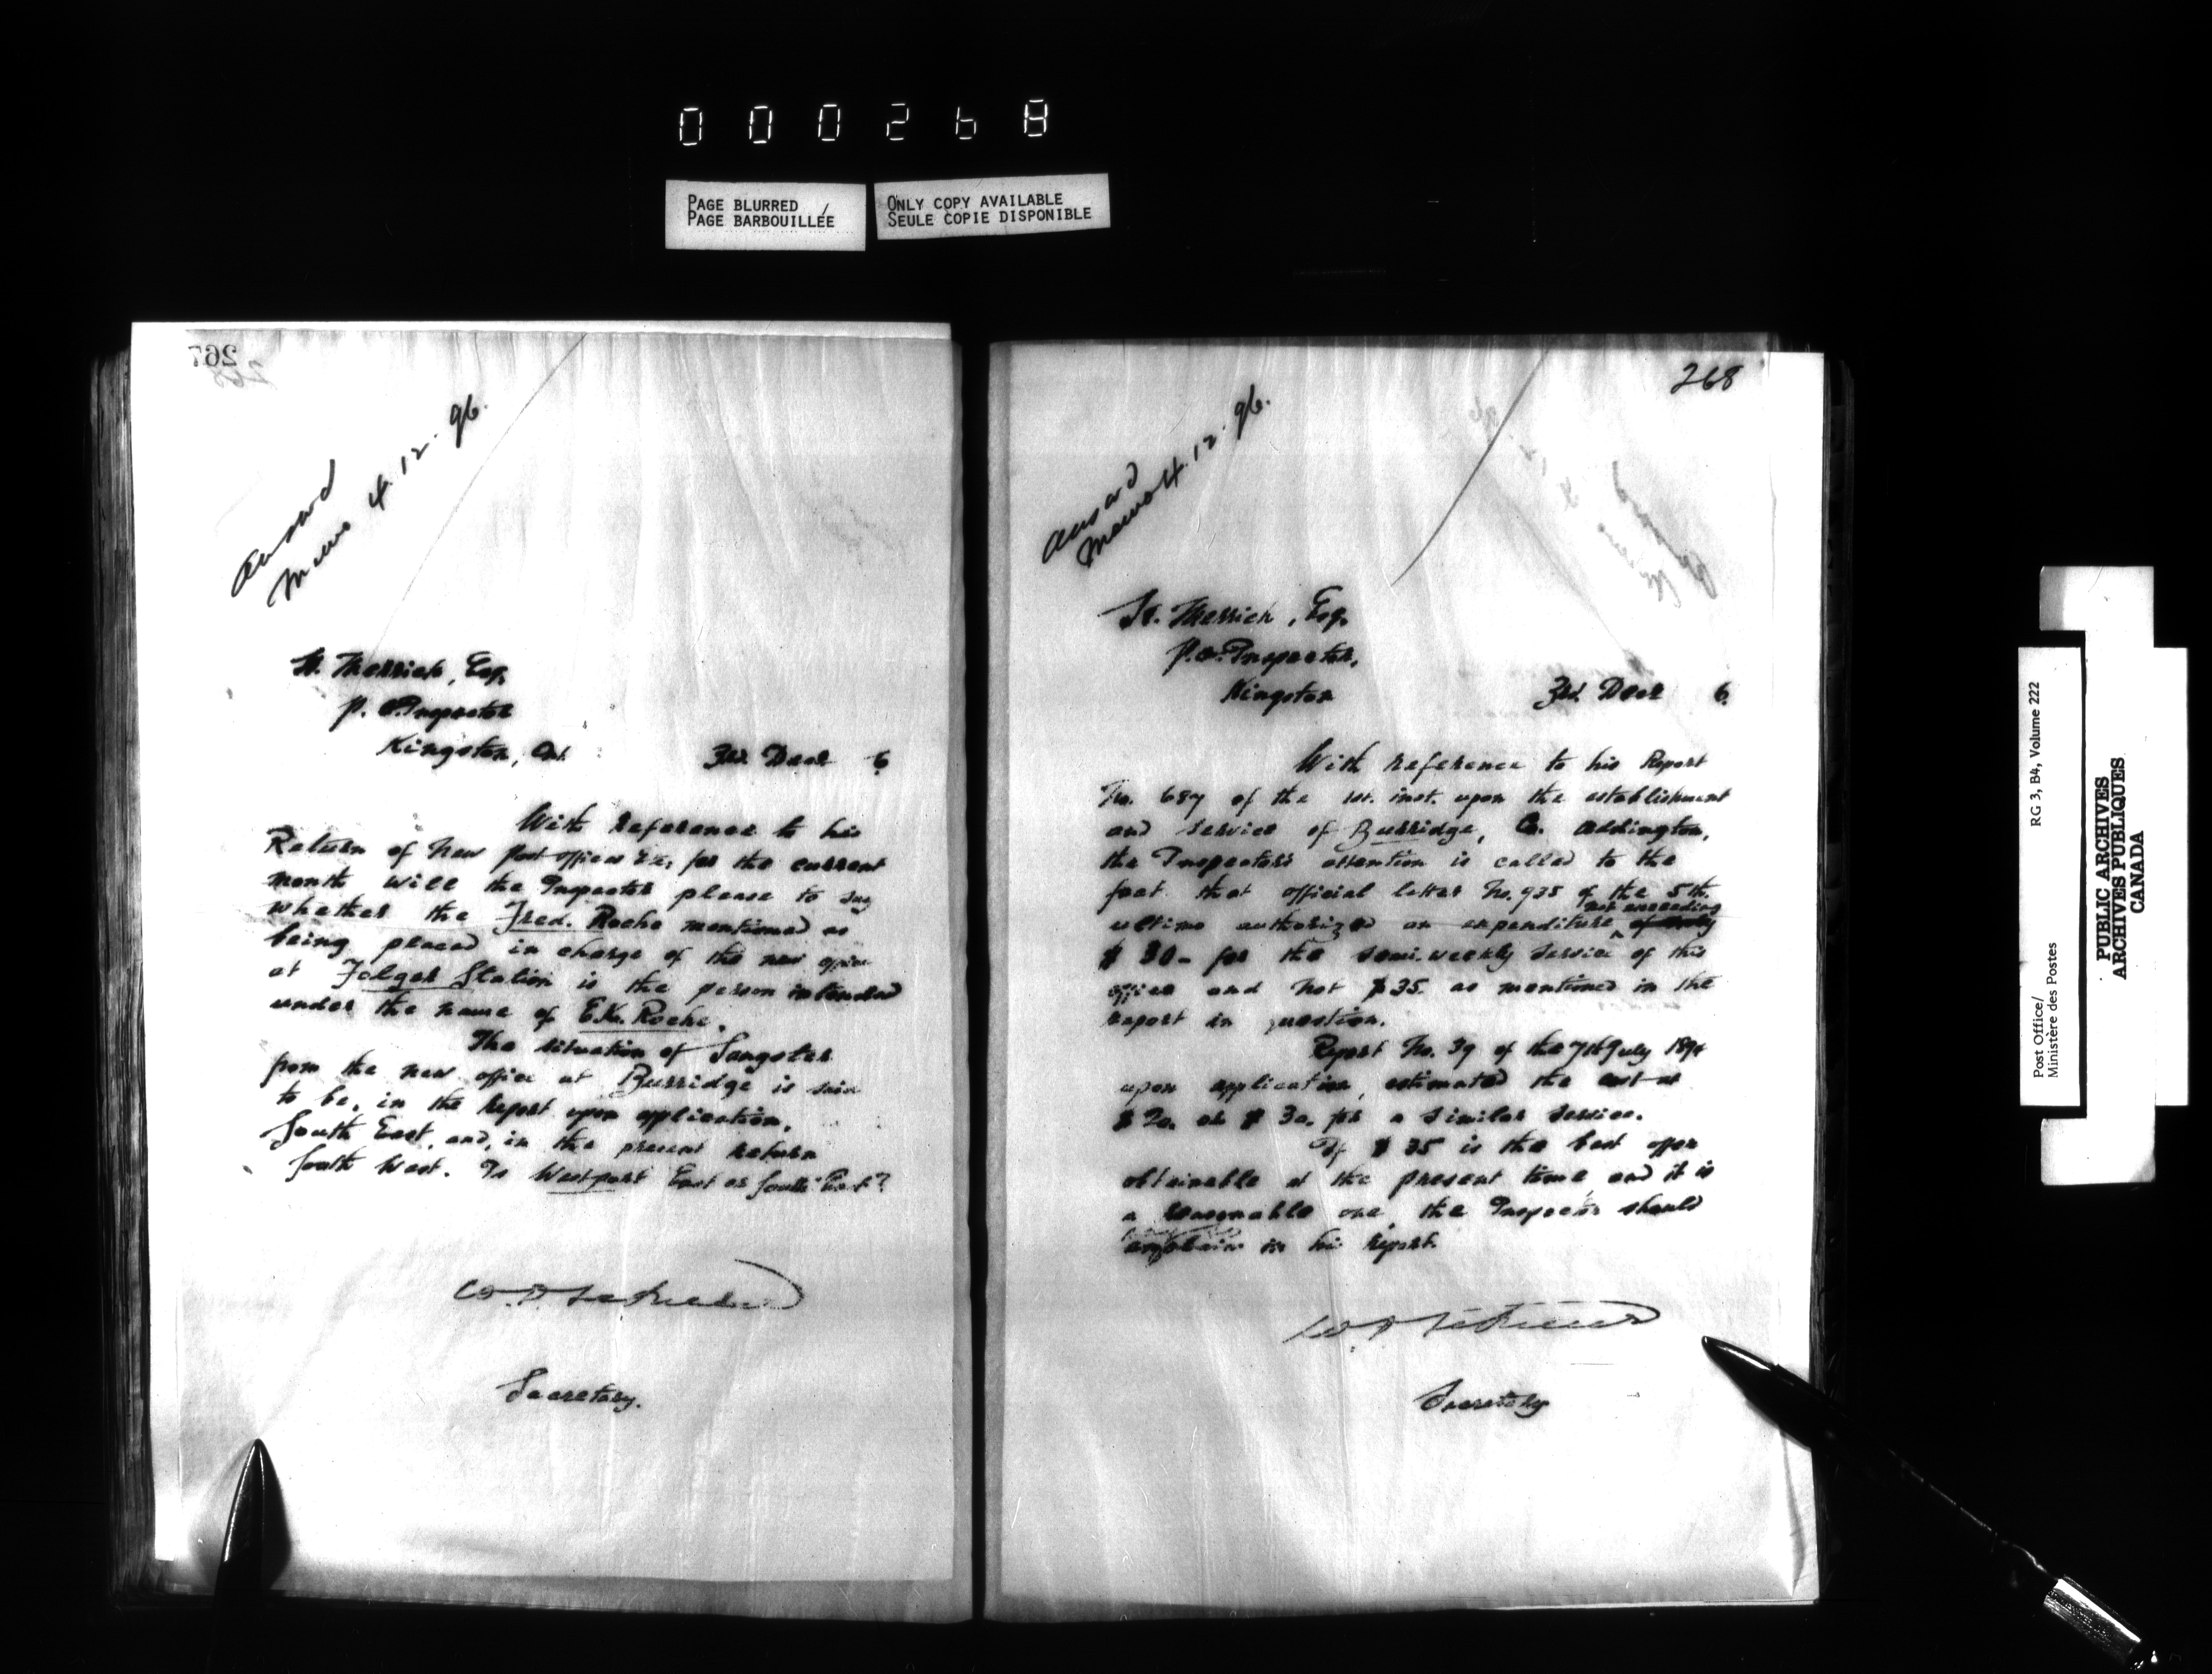 000268
PAGE BLURRED
PAGE BARBOUILLÉE
ONLY COPY AVAILABLE
SEULE COPIE DISPONIBLE
267
268
Ansard
Memo 4.12.96.
H. Merrick, Esq,
P. O. Inspector
Kingston, Ont. 3rd. Decr 6
With reference to his
Return of New Post offices &c, for the current
month will the Inspector please to say
whether the Fred. Roche mentioned as
being placed in charge of the new office
at Folger Station is the person intended
under the name of Roche.
The situation of Sangster
from the new office at Burridge is said
to be, in the report upon application,
South East, and, in the present return
South West. Is Westport East or South East?
Secretary.
268
Ansard
Memo 4.12.96.
H. Merrick, Esq.
P.O. Inspector,
Kingston 3rd. Decr 6.
With reference to his Report
No. 687 of the 1st. inst. upon the establishment
and service of Burridge, Co. Addington,
the Inspector's attention is called to the
fact that official letter No. 935 of the 5th.
not exceeding
ultimo authorized an expenditure of only
$ 30- for the semi-weekly service of this
office and not $35. as mentioned in the
report in question.
Report No. 39 of the 7th July 189
upon application, estimated the cost at
$ 20. or $ 30. for a similar service.
If $ 35 is the best offer
obtainable at the present time, and it is
a reasonable one, the Inspector should
explain in his report.
Secretary
Post Office/
Ministère des Postes
RG 3, B4, Volume 222
PUBLIC ARCHIVES
ARCHIVES PUBLIQUES
CANADA